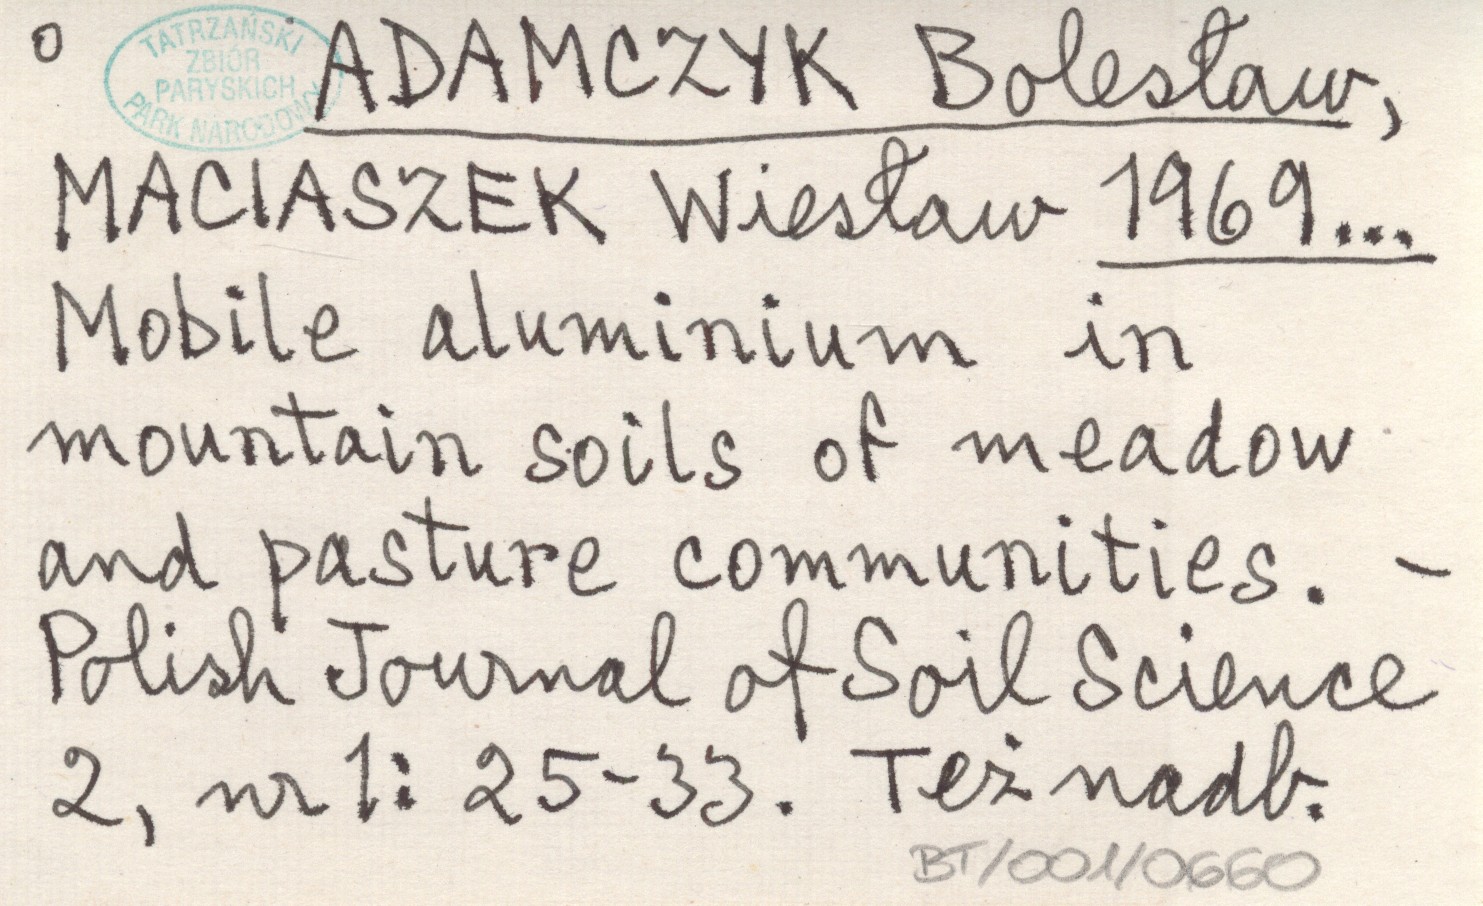 o
TATRZAŃSKI
ZBIÓR
PARYSKICH
PARK NARODOWY
ADAMCZYK Bolesław,
MACIASZEK Wiesław 1969...
Mobile aluminium in
mountain soils of meadow
and pasture communities. –
Polish Journal of Soil Science
2, nr 1: 25-33. Też nadb.
BT/001/0660